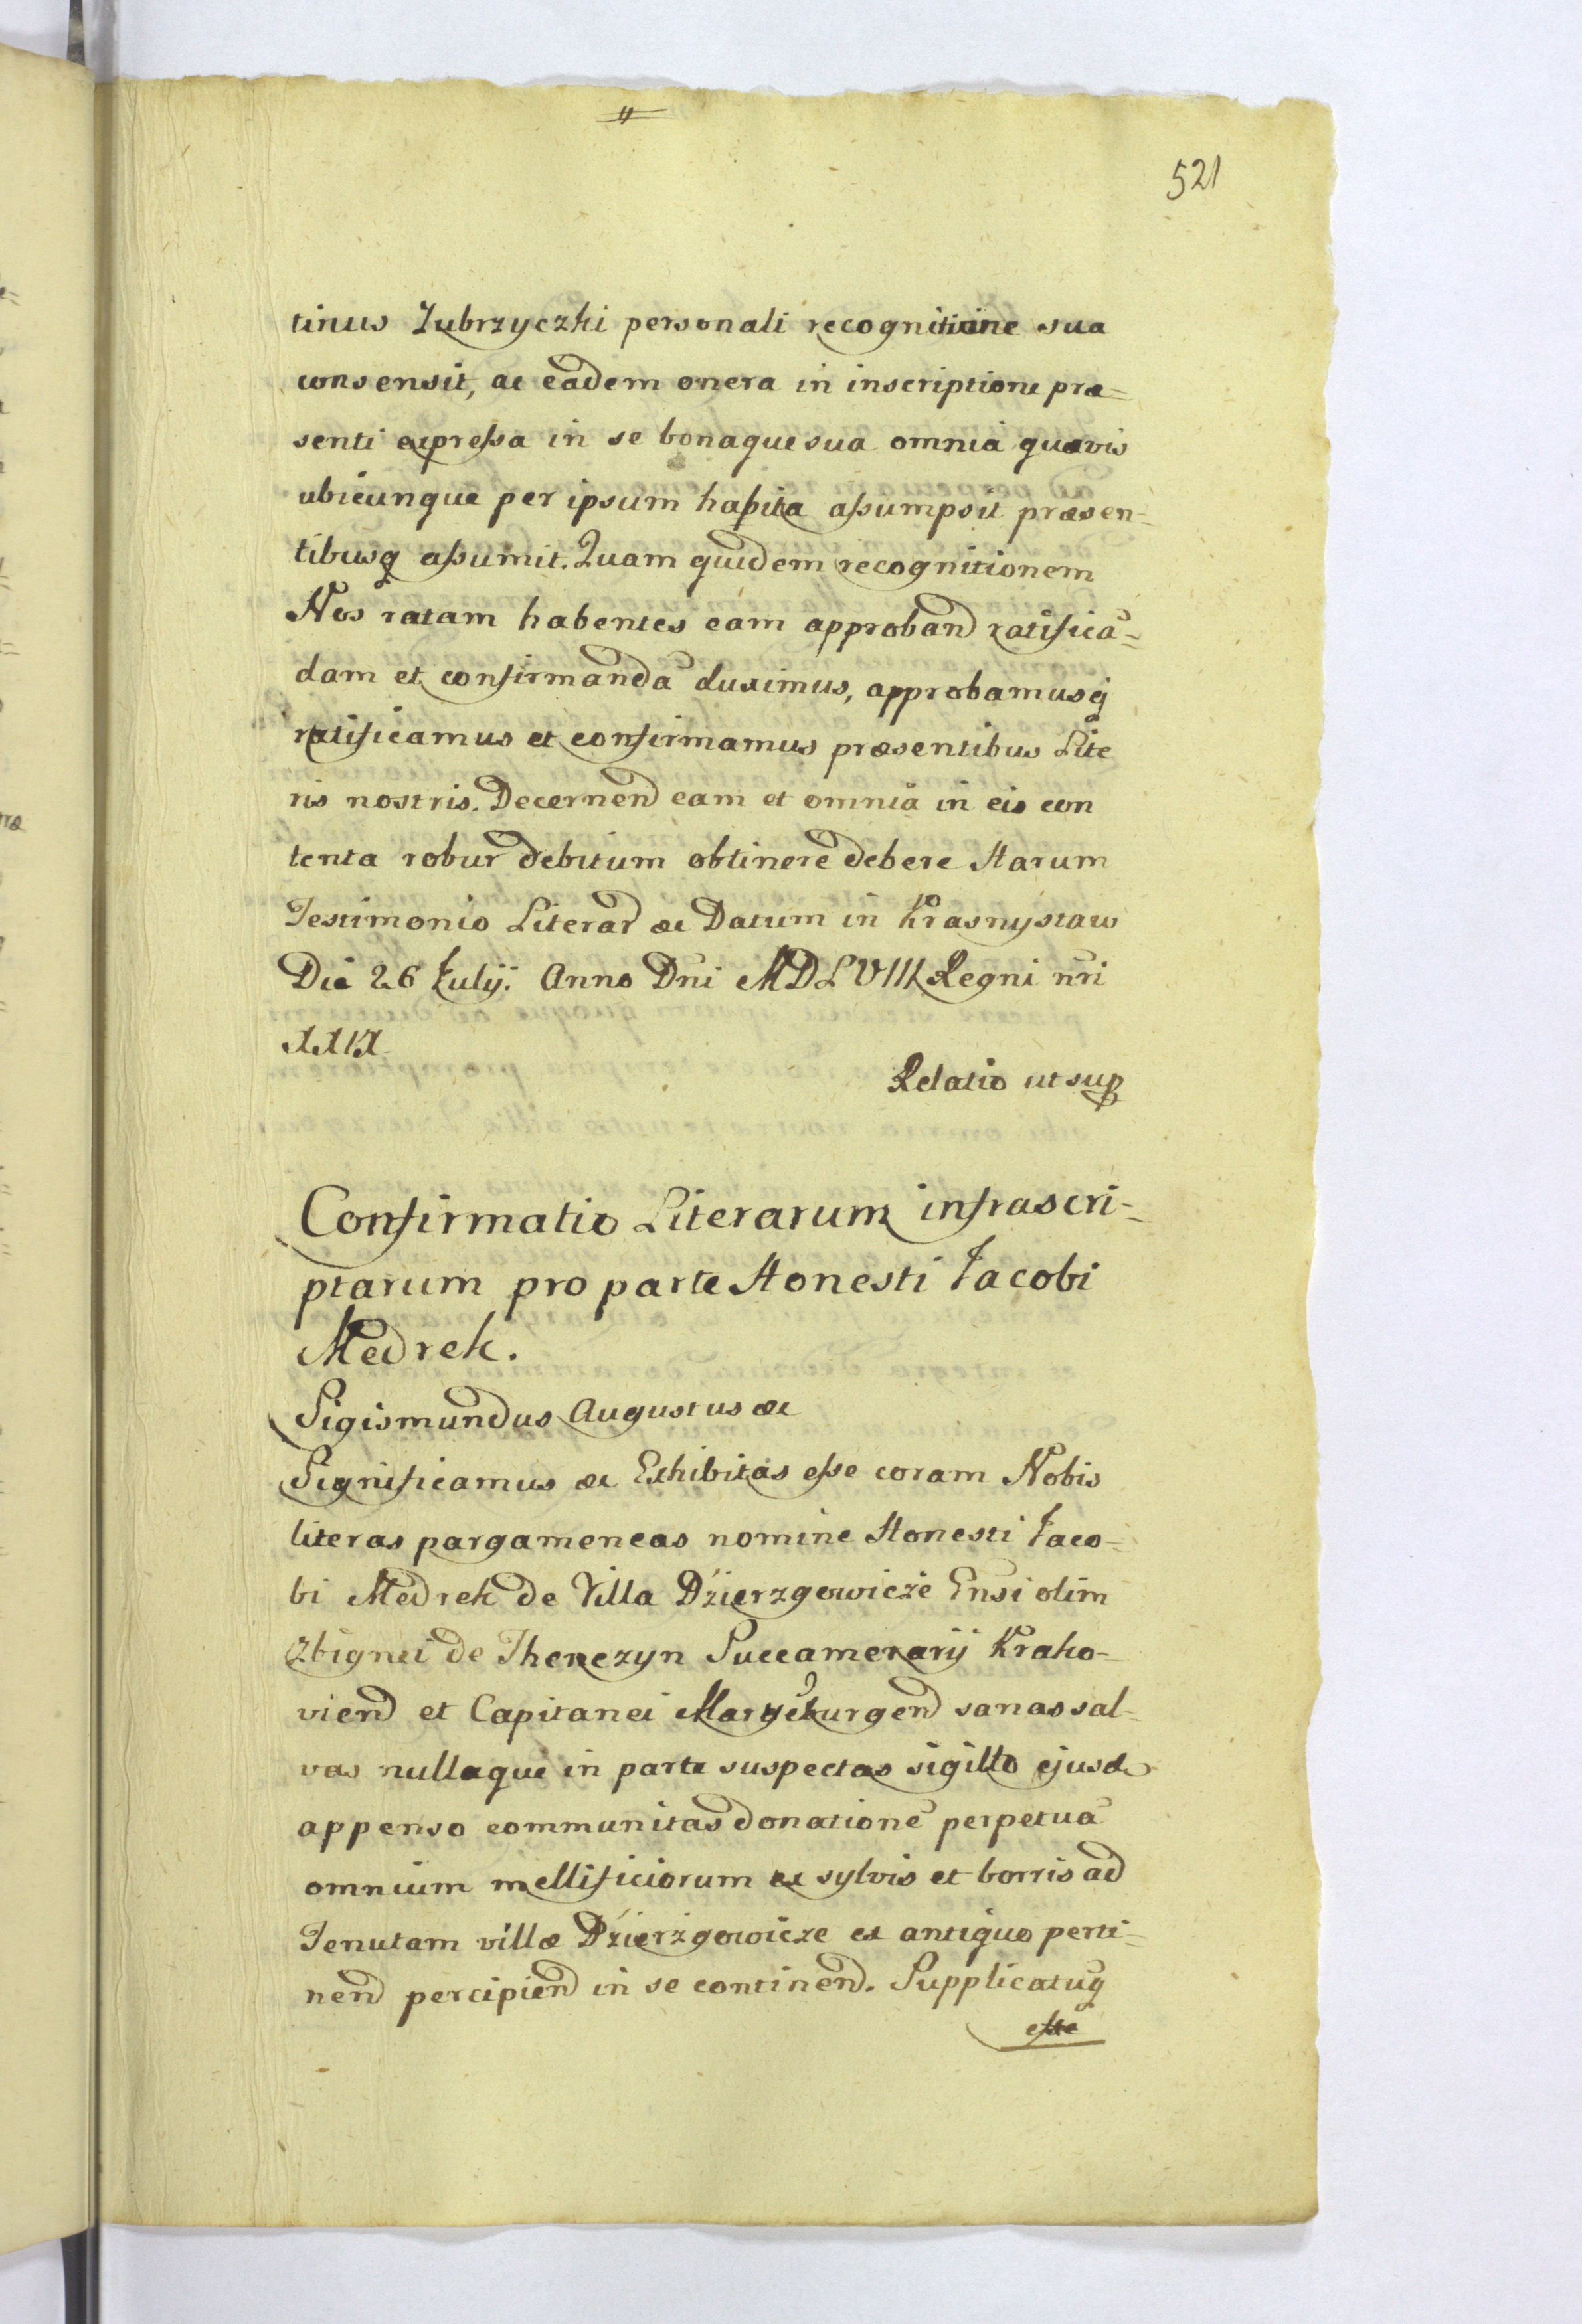 521
tinus Zubrzyczki personali recognitione sua
consensit, ac eadem onera in inscriptione præ=
senti expreßa in se bonaque sua omnia quævis
ubicunque per ipsum habita aßumpsit præsen=
tibusq aßumit. Quam quidem recognitionem
Nos ratam habentes eam approband ratificā=
dam et confirmandā duximus, approbamusq
ratificamus et confirmamus præsentibus Lite
ris nostris. Decernend eam et omnia in eis con
tenta robur debitum obtinere debere Harum
Testimonio Literar &c Datum in Krasnystaw
Die 26 Julij. Anno Dni MDLVIII Regni nri
XXIX
Relatio ut sup
Confirmatio Literarum infrascri=
ptarum pro parte Honesti Jacobi
Medrek.
Sigismundus Augustus &c
Significamus &c Exhibitas eße coram Nobis
literas pargameneas nomine Honesti Jaco=
bi Medrek de Villa Dźierzgowicze Ensi olim
Zbignei de Thenczyn Succamerarij Krako=
viend et Capitanei Margeburgend sanas sal=
vas nullaque in parte suspectas sigillo ejusd
appenso communitas donationē perpetuā
omnium mellificiorum ex sylvis et borris ad
Tenutam villæ Dźierżgowicze ex antiquo perti=
nend percipiend in se continend. Supplicatuq
eße